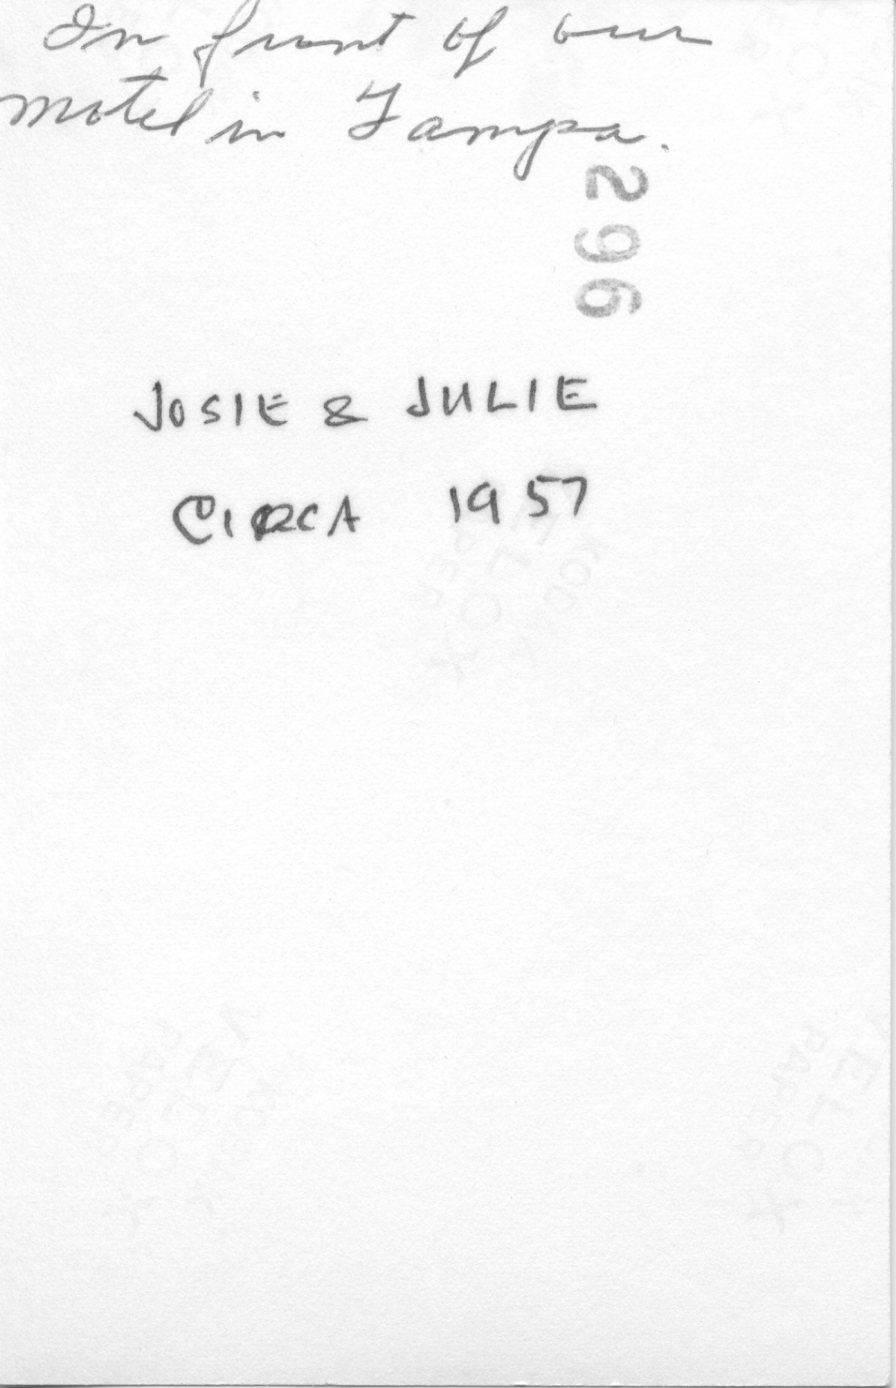 In front of our
motel in Tampa.
296
JOSIE & JULIE
CIRCA 1957
KODAK
VELOX
PAPER
KODAK
VELOX
PAPER
VELOX
PAPER